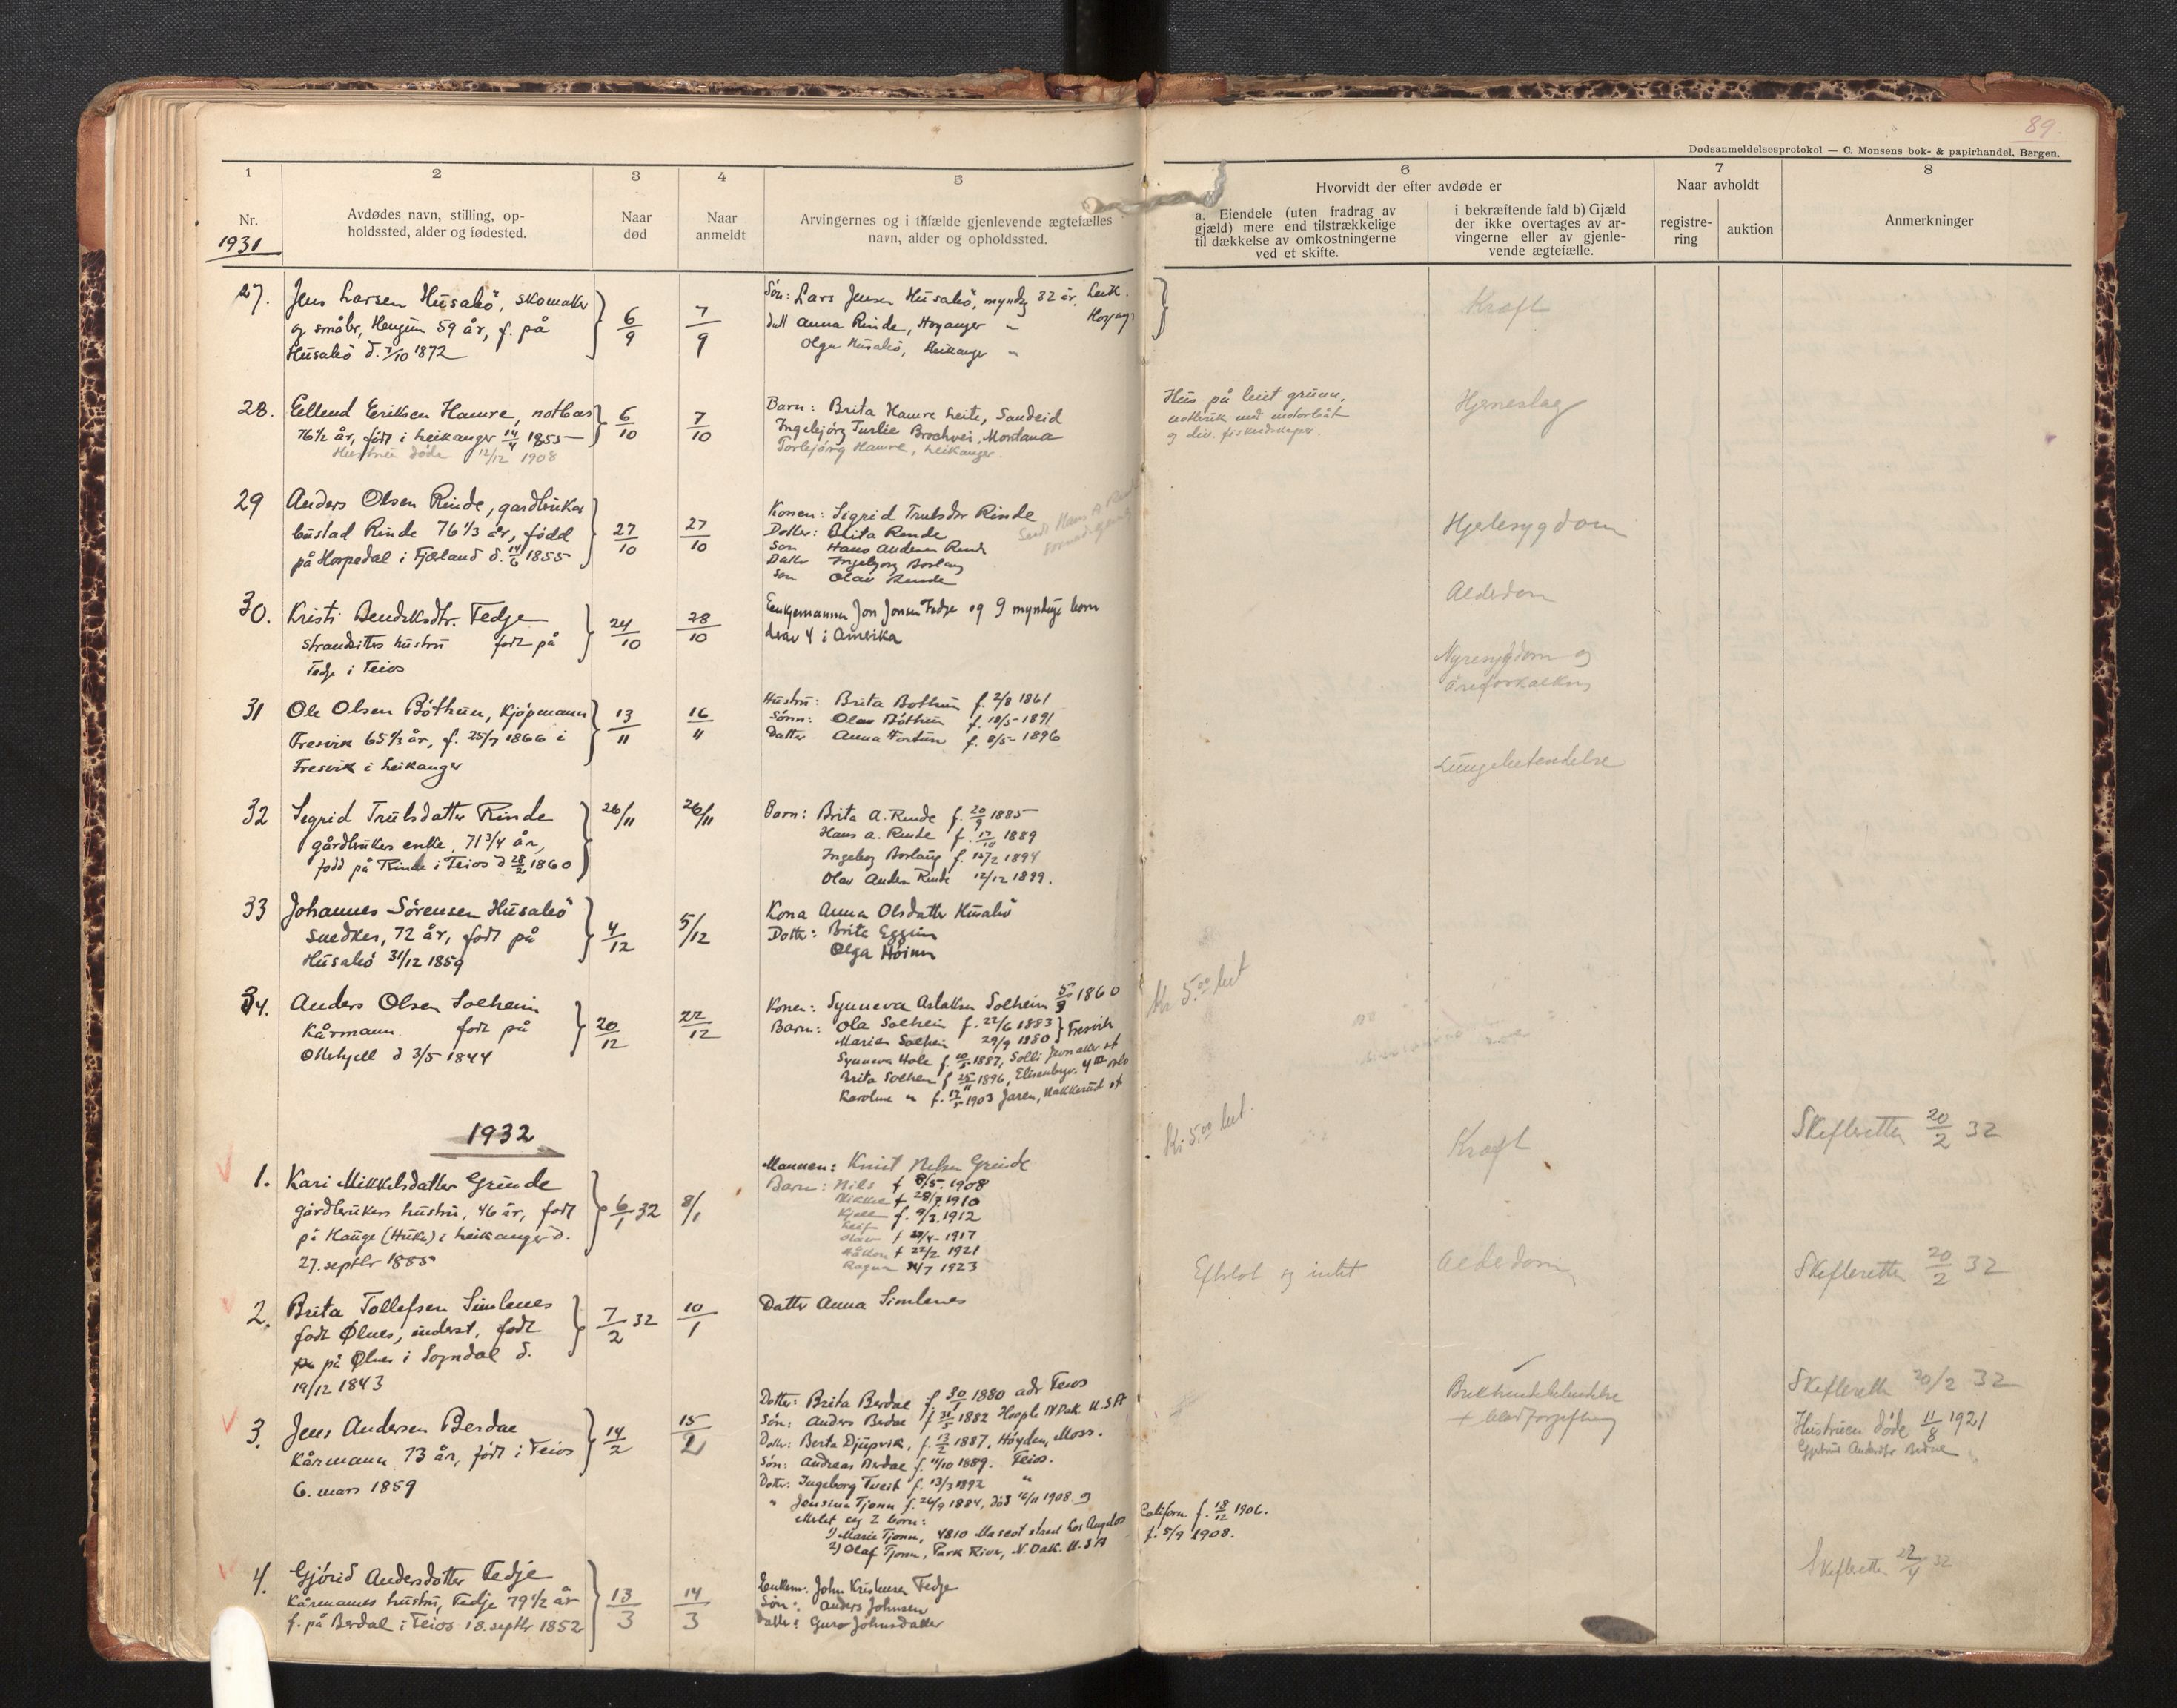 89.
Dødsanmeldelsesprotokol — C. Monsens bok- & papirhandel, Bergen.
1 2 3 4 5 6 7 8
Nr.
1931
Avdødes navn, stilling, op-
holdssted, alder og fødested.
Naar
død
Naar
anmeldt
Arvingernes og i tilfælde gjenlevende ægtefælles
navn, alder og opholdssted.
Hvorvidt der efter avdøde er
a. Eiendele (uten fradrag av
gjæld) mere end tilstrækkelige
til dækkelse av omkostningerne
ved et skifte.
i bekræftende fald b) Gjæld
der ikke overtages av ar-
vingerne eller av gjenle-
vende ægtefælle.
Naar avholdt
registre-
ring
auktion
Anmerkninger
27. Jens Larsen Husabö, skomaker
og småbr, Henjum 59 år, f. på
Husabö d. 7/10 1872
6/9
7/9
Sön: Lars Jensen Husabö, myndig 32 år, Leik.
datt Anna Rinde, Høyanger "
Olga Husabö, Leikanger "
Kræft
28. Eellend Eriksen Hamre, notbas
76½ år, født i Leikanger 14/4 1855
Hustrue døde 12/12 1908
6/10
7/10
Barn: Brita Hamre Leite, Sandeid
Ingebjörg Turlie Brochvei, Montana
Torbjörg Hamre, Leikanger.
Hus på leiet grunn,
notbruk med motorbåt
og div. fiskeredskaper.
Hjerneslag
29 Anders Olsen Rinde, gardbruker
bustad Rinde 76 1/3 år, fødd
på Horpedal i Fjærland d. 14/6 1855
27/10
27/10
Konen: Sigrid Trulsdtr Rinde
Dotter: Brita Rinde
Son Hans Andersen Rinde
Datter Ingebjorg Borlaug
Son Olav Rinde
Hjertesygdom
30. Kristi Bendiksdtr. Fedje
strandsitters hustru født på
Fedje i Feios
24/10
28/10
Enkjemannen Jon Jonsen Fedje og 9 myndige born
derav 4 i Amerika
Alderdom
31 Ole Olsen Böthun, Kjöpmann
Fresvik 65 1/3 år, f. 25/7 1866 i
Fresvik i Leikanger
13/11
16/11
Hustru: Brita Bothun f. 2/8 1861
Sönn: Olav Böthun f. 18/5 - 1891
Datter Anna Fortun f. 8/5 - 1896
Nyresygdom og
åreforkalkning
32 Segrid Trulsdatter Rinde
gårdbrukers enke, 71 3/4 år,
fødd på Rinde i Feios d 28/2 1860
26/11
26/11
Barn: Brita A. Rinde f. 20/9 1885
Hans A. Rinde f. 17/10 1889
Ingeborg Borlaug f. 12/2 1894
Olav Anders Rinde 12/12 1899.
Lungebetendelse
33 Johannes Sörensen Husabö
snedker, 72 år, født på
Husabö 31/12 1859
4/12
5/12
Kona Anna Olsdatter Husabö
Dotter: Brita Eggum
Olga
34. Anders Olsen Solheim
Kårmann født på
d 3/5 1844
20/12
22/12
Konen: Synneva Aslaksen Solheim 5/9 1860
Barn: Ola Solheim f. 22/6 1883 } Fresvik
Marien Solheim 29/9 1880
Synneva Hole f. 1887, Solli
Brita Solheim f 25/11 1896, Elisenbgv. 4 III Oslo
Karoline " f. 1903 Jaren, Hakkerud st
Kr 5.00 bet
1932
1. Kari Mikkelsdatter Grinde
gårdbrukers hustru, 46 år, født
på Hauge (Huke) i Leikanger d.
27. septbr 1885
6/1 32
8/1
Mannen: Knut Nelsen Grinde
Barn: Nils f 8/5. 1908
Mikkel f 28/7 1910
Kjell f. 9/3. 1912
Leif
Olav f 1917
Håkon f 22/2 1921
Ragna 1923
Kr 5.00 bet.
Kræft
Skifteretten 20/2 32
2. Brita Tollefsen Simlenes
født Ølnes, inderst, født
på Ølnes i Sogndal d.
19/12 1843
7/2 32
10/1
Datter Anna Simlenes
Efterlot sig intet
Alderdom
Skifteretten 20/2 32
3. Jens Andersen Berdal
Kårmann 73 år, født i Feios
6. mars 1859
14/2
15/2
Dotter: Brita Berdal f. 30/1 1880 adr Feios
Sön: Anders Berdal f 1882 Hoople N Dak. U.S.A
Dotter: Berta Djupvik, f. 13/2 1887, Höyden, Moss.
Sön: Andreas Berdal f. 11/10 1889. Feios.
Dotter: Ingeborg Tveit f. 13/3 1892 "
" Jensina Tjonn f. 26/9 1884, död 16/11 1908 og
etterlet seg 2 born:
1) Marie Tjonn, 4810 Mascot street Los Angelos Californ. f. 18/12 1906.
2) Olaf Tjonn, Park River, N. Dak. U.S.A f. 5/9 1908.
Bukhindebetendelse
+ blodforgiftning
Skifterett 20/2 32
Hustruen døde 11/8 1921
Gjertrud Andersdtr Berdal
4. Gjörid Andersdotter Fedje
Kårmannes hustru, Fedje 79 1/2 år
f. på Berdal i Feios 18. septbr 1852
13/3
14/3
Enkem. John Kristensen Fedje
Sön: Anders Johnsen
Datter: Guro Johnsdatter
Skifteretten 32